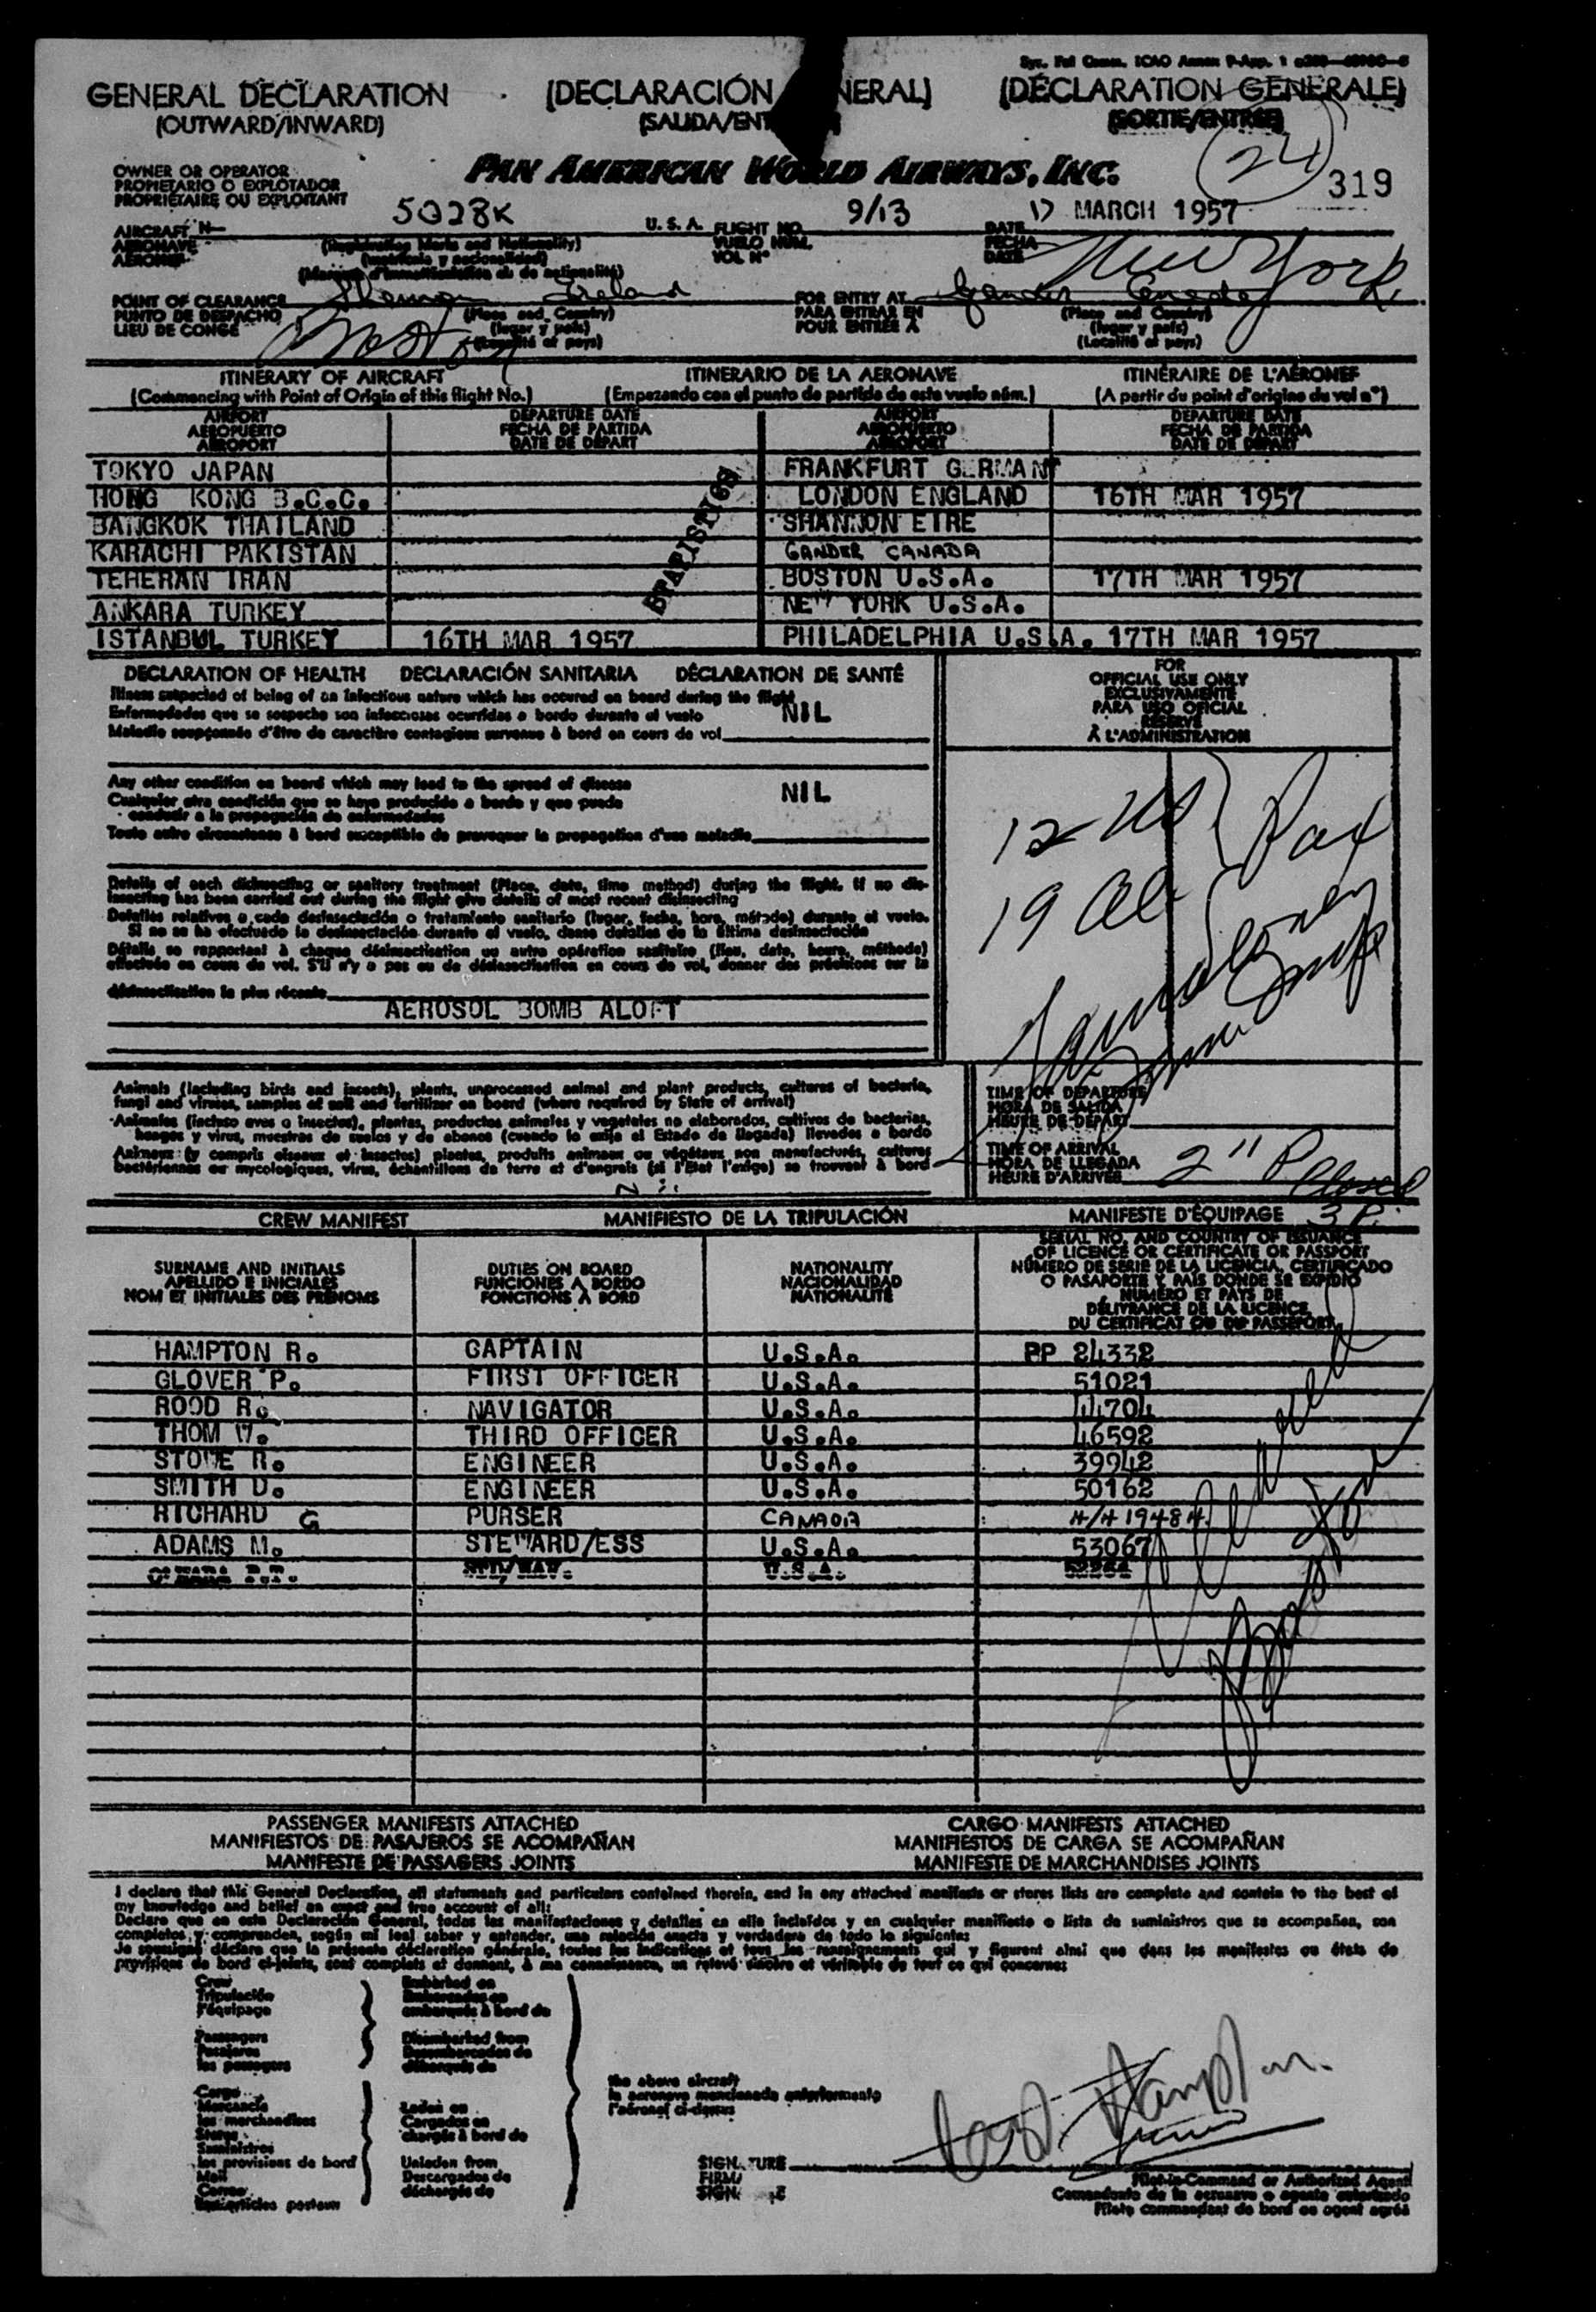 GENERAL DECLARATION (DECLARACIÓN NERAL) (DÉCLARATION GENERALE)
(OUTWARD/INWARD) (SALIDA/ENT (SORTIE/ENTRÉE)
24
319
OWNER OR OPERATOR
PROPIETARIO O EXPLOTADOR
PROPRIÉTAIRE OU EXPLOITANT
PAN AMERICAN WORLD AIRWAYS, INC.
AIRCRAFT N— 5028K U. S. A. FLIGHT NO. 9/13 DATE 17 MARCH 1957
AERONAVE (Registration Marks and Nationality) VUELO NUM. FECHA
AERONEF (matrícula y nacionalidad) VOL Nº DATE
New York
POINT OF CLEARANCE Shannon Ireland FOR ENTRY AT Gander Canada
PUNTO DE DESPACHO (Place and Country) PARA ENTRAR EN (Place and Country)
LIEU DE CONGÉ (lugar y país) POUR ENTRÉE À (lugar y país)
Boston
(Localité et pays) (Localité et pays)
ITINERARY OF AIRCRAFT ITINERARIO DE LA AERONAVE ITINÉRAIRE DE L'AÉRONEF
(Commencing with Point of Origin of this flight No.) (Empezando con el punto de partida de este vuelo núm.) (A partir du point d'origine du vol nº)
AIRPORT DEPARTURE DATE AIRPORT DEPARTURE DATE
AEROPUERTO FECHA DE PARTIDA AEROPUERTO FECHA DE PARTIDA
AÉROPORT DATE DE DÉPART AÉROPORT DATE DE DÉPART
TOKYO JAPAN FRANKFURT GERMANY
HONG KONG B.C.C. LONDON ENGLAND 16TH MAR 1957
BANGKOK THAILAND SHANNON EIRE
KARACHI PAKISTAN GANDER CANADA
TEHERAN IRAN BOSTON U.S.A. 17TH MAR 1957
ANKARA TURKEY NEW YORK U.S.A.
ISTANBUL TURKEY 16TH MAR 1957 PHILADELPHIA U.S.A. 17TH MAR 1957
DECLARATION OF HEALTH DECLARACIÓN SANITARIA DÉCLARATION DE SANTÉ
FOR
OFFICIAL USE ONLY
EXCLUSIVAMENTE
PARA USO OFICIAL
RESERVÉ
À L'ADMINISTRATION
Illness suspected of being of an infectious nature which has occured on board during the flight
Enfermedades que se sospeche son infecciosas ocurridas a bordo durante el vuelo NIL
Maladie soupçonnée d'être de caractère contagieux survenue à bord en cours de vol
Any other condition on board which may lead to the spread of disease
Cualquier otra condición que se haya producido a bordo y que pueda NIL
conducir a la propagación de enfermedades
Toute autre circonstance à bord susceptible de provoquer la propagation d'une maladie
12 US
19 Al
Pax
Details of each disinsecting or sanitary treatment (Place, date, time method) during the flight. If no dis-
insecting has been carried out during the flight give details of most recent disinsecting
Detalles relativos a cada desinsectación o tratamiento sanitario (lugar, fecha, hora, método) durante el vuelo.
Si no se ha efectuado la desinsectación durante el vuelo, dense detalles de la última desinsectación
Détails se rapportant à chaque désinsectisation ou autre opération sanitaire (lieu, date, heure, méthode)
effectuée en cours de vol. S'il n'y a pas eu de désinsectisation en cours de vol, donner des précisions sur la
désinsectisation la plus récente
AEROSOL BOMB ALOFT
Animals (including birds and insects), plants, unprocessed animal and plant products, cultures of bacteria,
fungi and viruses, samples of soil and fertilizer on board (where required by State of arrival)
Animales (incluso aves o insectos), plantas, productos animales y vegetales no elaborados, cultivos de bacterias,
hongos y virus, muestras de suelos y de abonos (cuando lo exija el Estado de llegada) llevados a bordo
Animaux (y compris oiseaux et insectes) plantes, produits animaux ou végétaux non manufacturés, cultures
bactériennes ou mycologiques, virus, échantillons de terre et d'engrais (si l'État l'exige) se trouvant à bord
Nil
TIME OF DEPARTURE
HORA DE SALIDA
HEURE DE DÉPART
TIME OF ARRIVAL
HORA DE LLEGADA
HEURE D'ARRIVÉE 2 11 P
CREW MANIFEST MANIFIESTO DE LA TRIPULACIÓN MANIFESTE D'ÉQUIPAGE
SURNAME AND INITIALS DUTIES ON BOARD NATIONALITY
APELLIDO E INICIALES FUNCIONES A BORDO NACIONALIDAD
NOM ET INITIALES DES PRÉNOMS FONCTIONS À BORD NATIONALITÉ
SERIAL NO. AND COUNTRY OF ISSUANCE
OF LICENCE OR CERTIFICATE OR PASSPORT
NÚMERO DE SERIE DE LA LICENCIA, CERTIFICADO
O PASAPORTE Y PAÍS DONDE SE EXPIDIO
NUMÉRO ET PAYS DE
DÉLIVRANCE DE LA LICENCE
DU CERTIFICAT OU DU PASSEPORT
HAMPTON R. CAPTAIN U.S.A. PP 24332
GLOVER P. FIRST OFFICER U.S.A. 51021
ROOD R. NAVIGATOR U.S.A. 44704
THOM W. THIRD OFFICER U.S.A. 46592
STONE R. ENGINEER U.S.A. 39942
SMITH D. ENGINEER U.S.A. 50162
RICHARD G PURSER CANADA 4/4 19484
ADAMS M. STEWARD/ESS U.S.A. 53067
U.S.A.
PASSENGER MANIFESTS ATTACHED CARGO MANIFESTS ATTACHED
MANIFIESTOS DE PASAJEROS SE ACOMPAÑAN MANIFIESTOS DE CARGA SE ACOMPAÑAN
MANIFESTE DE PASSAGERS JOINTS MANIFESTE DE MARCHANDISES JOINTS
I declare that this General Declaration, all statements and particulars contained therein, and in any attached manifests or stores lists are complete and contain to the best of
my knowledge and belief an exact and true account of all:
Declaro que en esta Declaración General, todas las manifestaciones y detalles en ella incluídos y en cualquier manifiesto o lista de suministros que se acompañen, son
completos y comprenden, según mi leal saber y entender, una relación exacta y verdadera de todo lo siguiente:
Je soussigné déclare que la présente déclaration générale, toutes les indications et tous les renseignements qui y figurent ainsi que dans les manifestes ou états de
provisions de bord ci-joints, sont complets et donnent, à ma connaissance, un relevé sincère et véritable de tout ce qui concerne:
Crew Embarked on
Tripulación Embarcados en
l'équipage embarqués à bord de
Passengers Disembarked from
Pasajeros Desembarcados de
les passagers débarqués de
the above aircraft
la aeronave mencionada anteriormente
l'aéronef ci-dessus
Cargo Laden on
Mercancía Cargados en
les marchandises chargés à bord de
Stores
Suministros
les provisions de bord Unladen from
Mail Descargados de
Correo déchargés de
les articles postaux
SIGNATURE Capt. Hampton
FIRMA
Pilot-in-Command or Authorized Agent
Comandante de la aeronave o agente autorizado
Pilote commandant de bord ou agent agréé